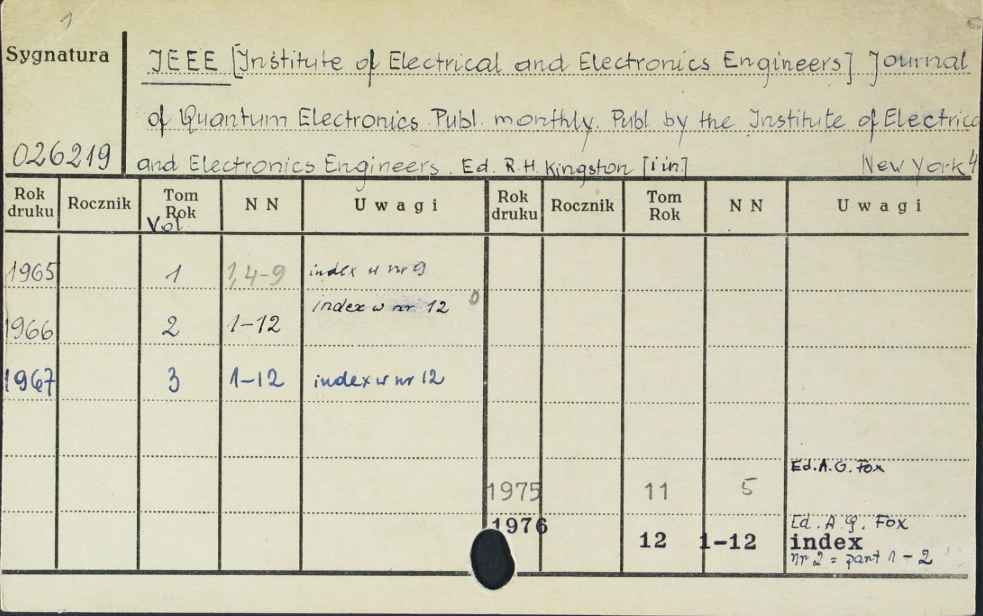 1
Sygnatura
IEEE [Institute of Electrical and Electronics Engineers] Journal
of Quantum Electronics. Publ. monthly. Publ by the Institute of Electrica
026219 and Electronics Engineers. Ed. R.H. Kingston [i in.] New York 4
Rok druku Rocznik Tom Rok Vol. NN Uwagi Rok druku Rocznik Tom Rok NN Uwagi
1965 1 1,4-9 index w nr 9
1966 2 1-12 index w nr 12 0
1967 3 1-12 index w nr 12
Ed. A.G. Fox
1975 11 5
1976 12 1-12 Ed. A.G. Fox
index
nr 2 = part 1-2